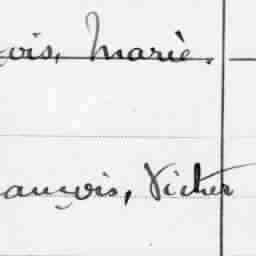 çois, Marie.
ançois, Victor